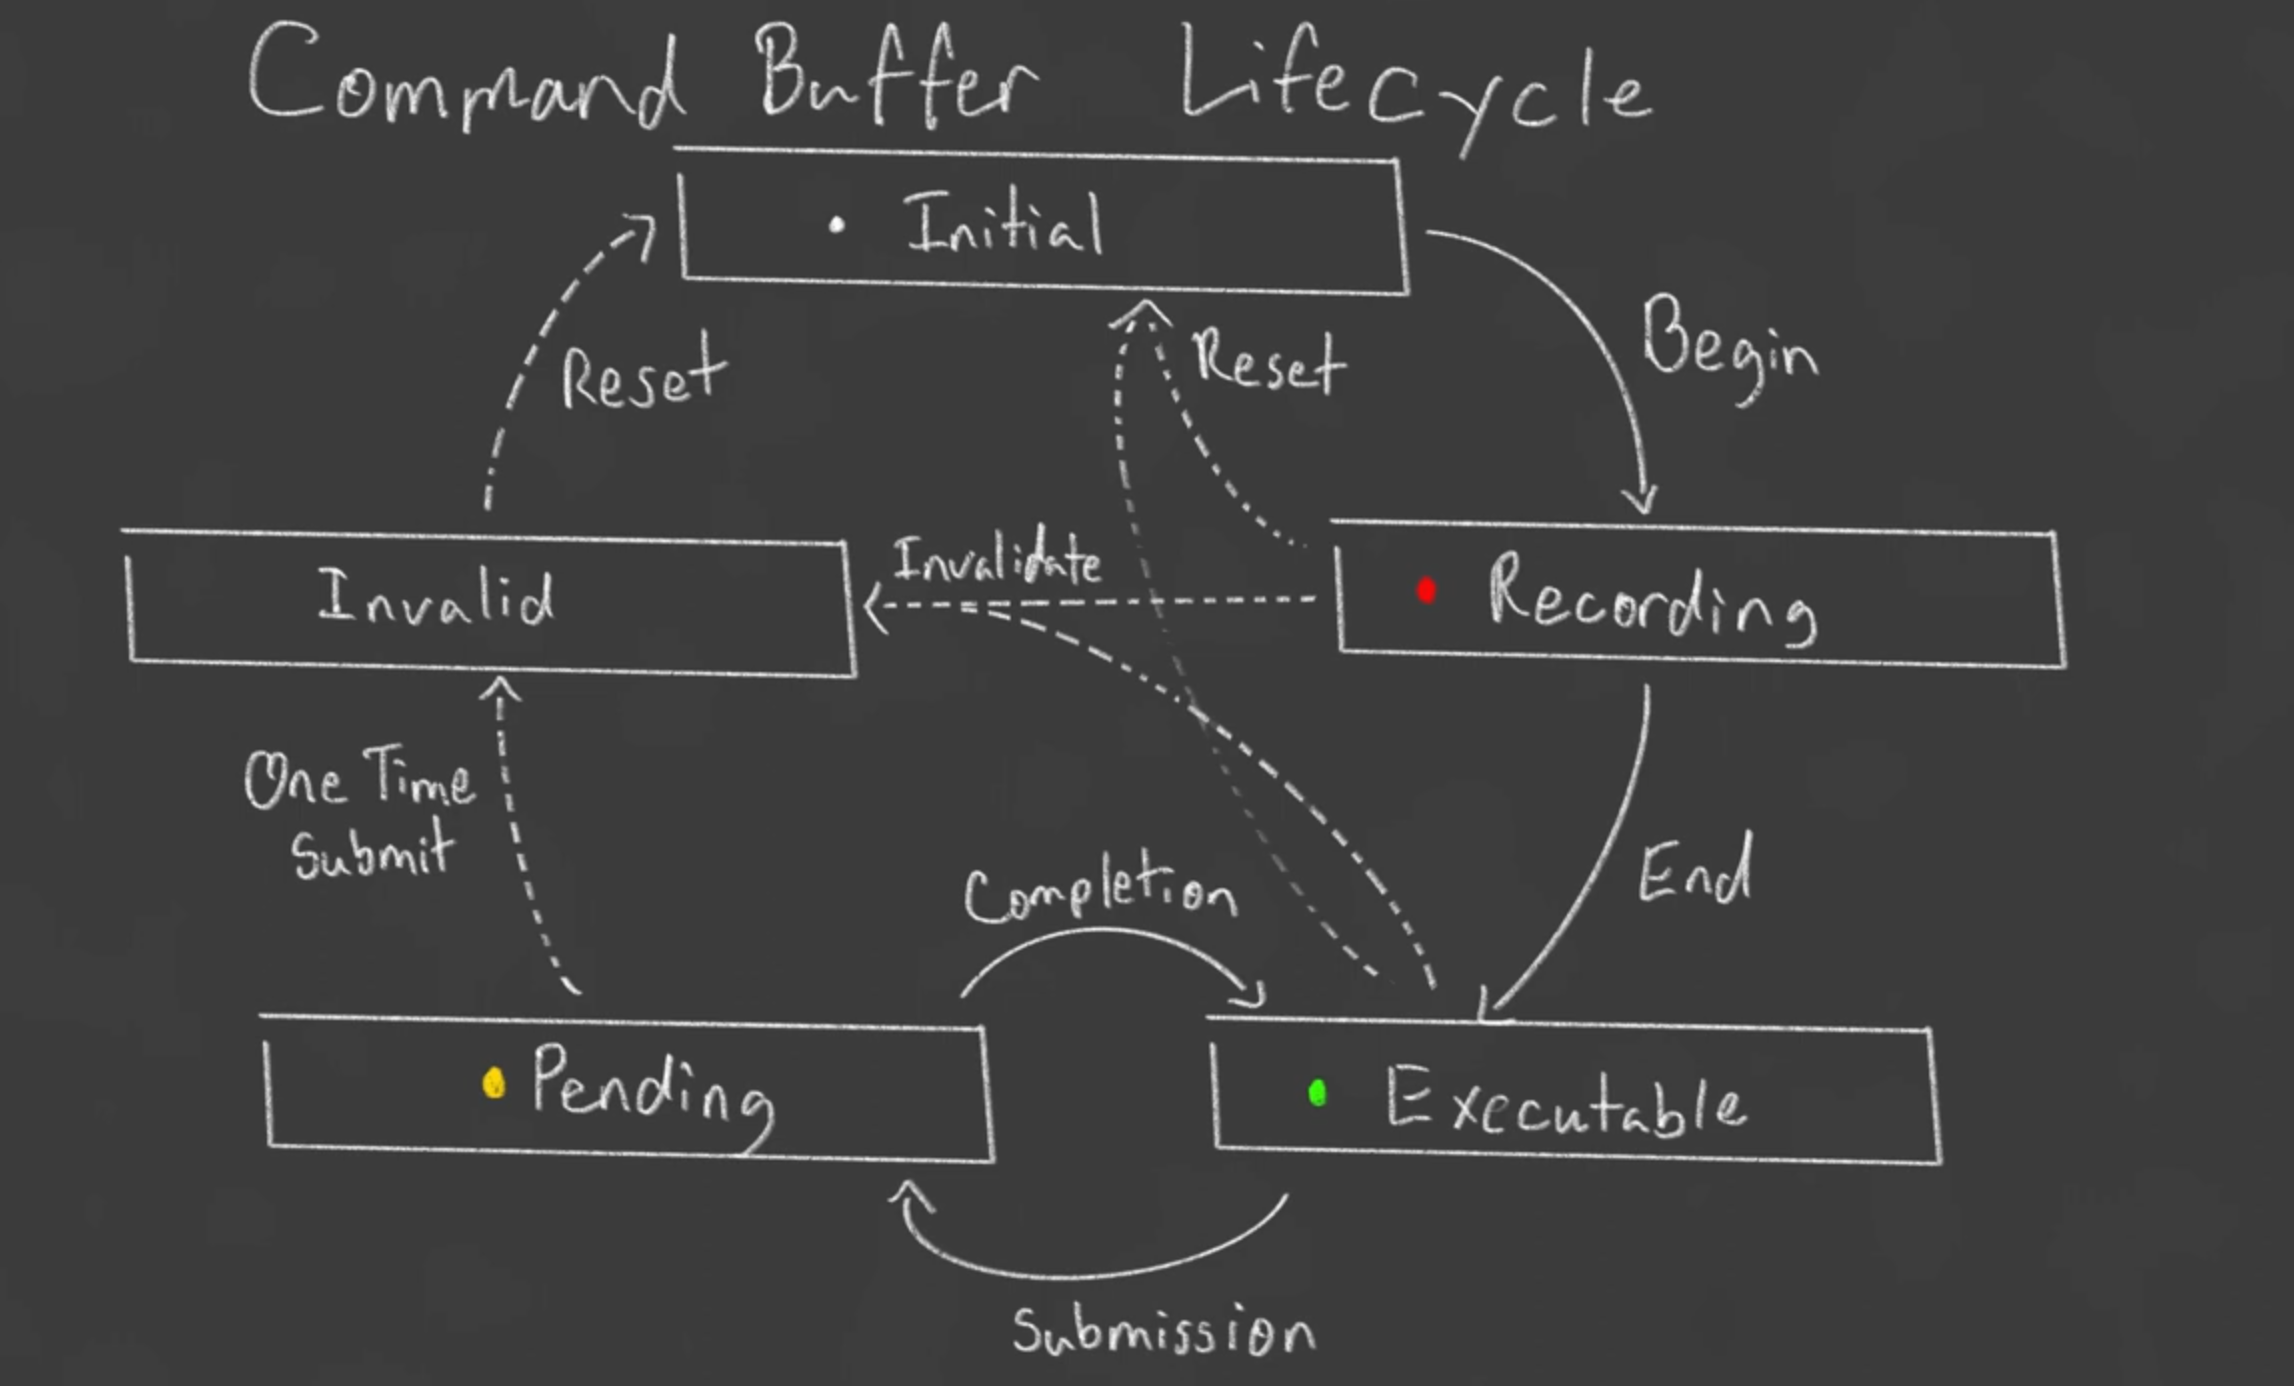 Command Buffer Lifecycle
Initial
Begin
Reset
Reset
Invalid
Invalidate
Recording
One Time
Submit
Completion
End
Pending
Executable
Submission